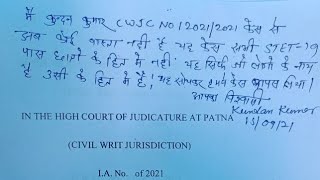 मैं कुन्दन कुमार CWJC NO 12021/2021 केस से
अब कोई वास्ता नहीं है यह केस सभी STET-19
पास छात्रों के हित में नहीं यह सिर्फ जो लोगों के नाम
है उसी के हित में है। यह सोचकर हमने केस वापस लिया।
आपका विश्वासी
Kundan Kumar
13/09/21
IN THE HIGH COURT OF JUDICATURE AT PATNA
(CIVIL WRIT JURISDICTION)
I.A. No. of 2021